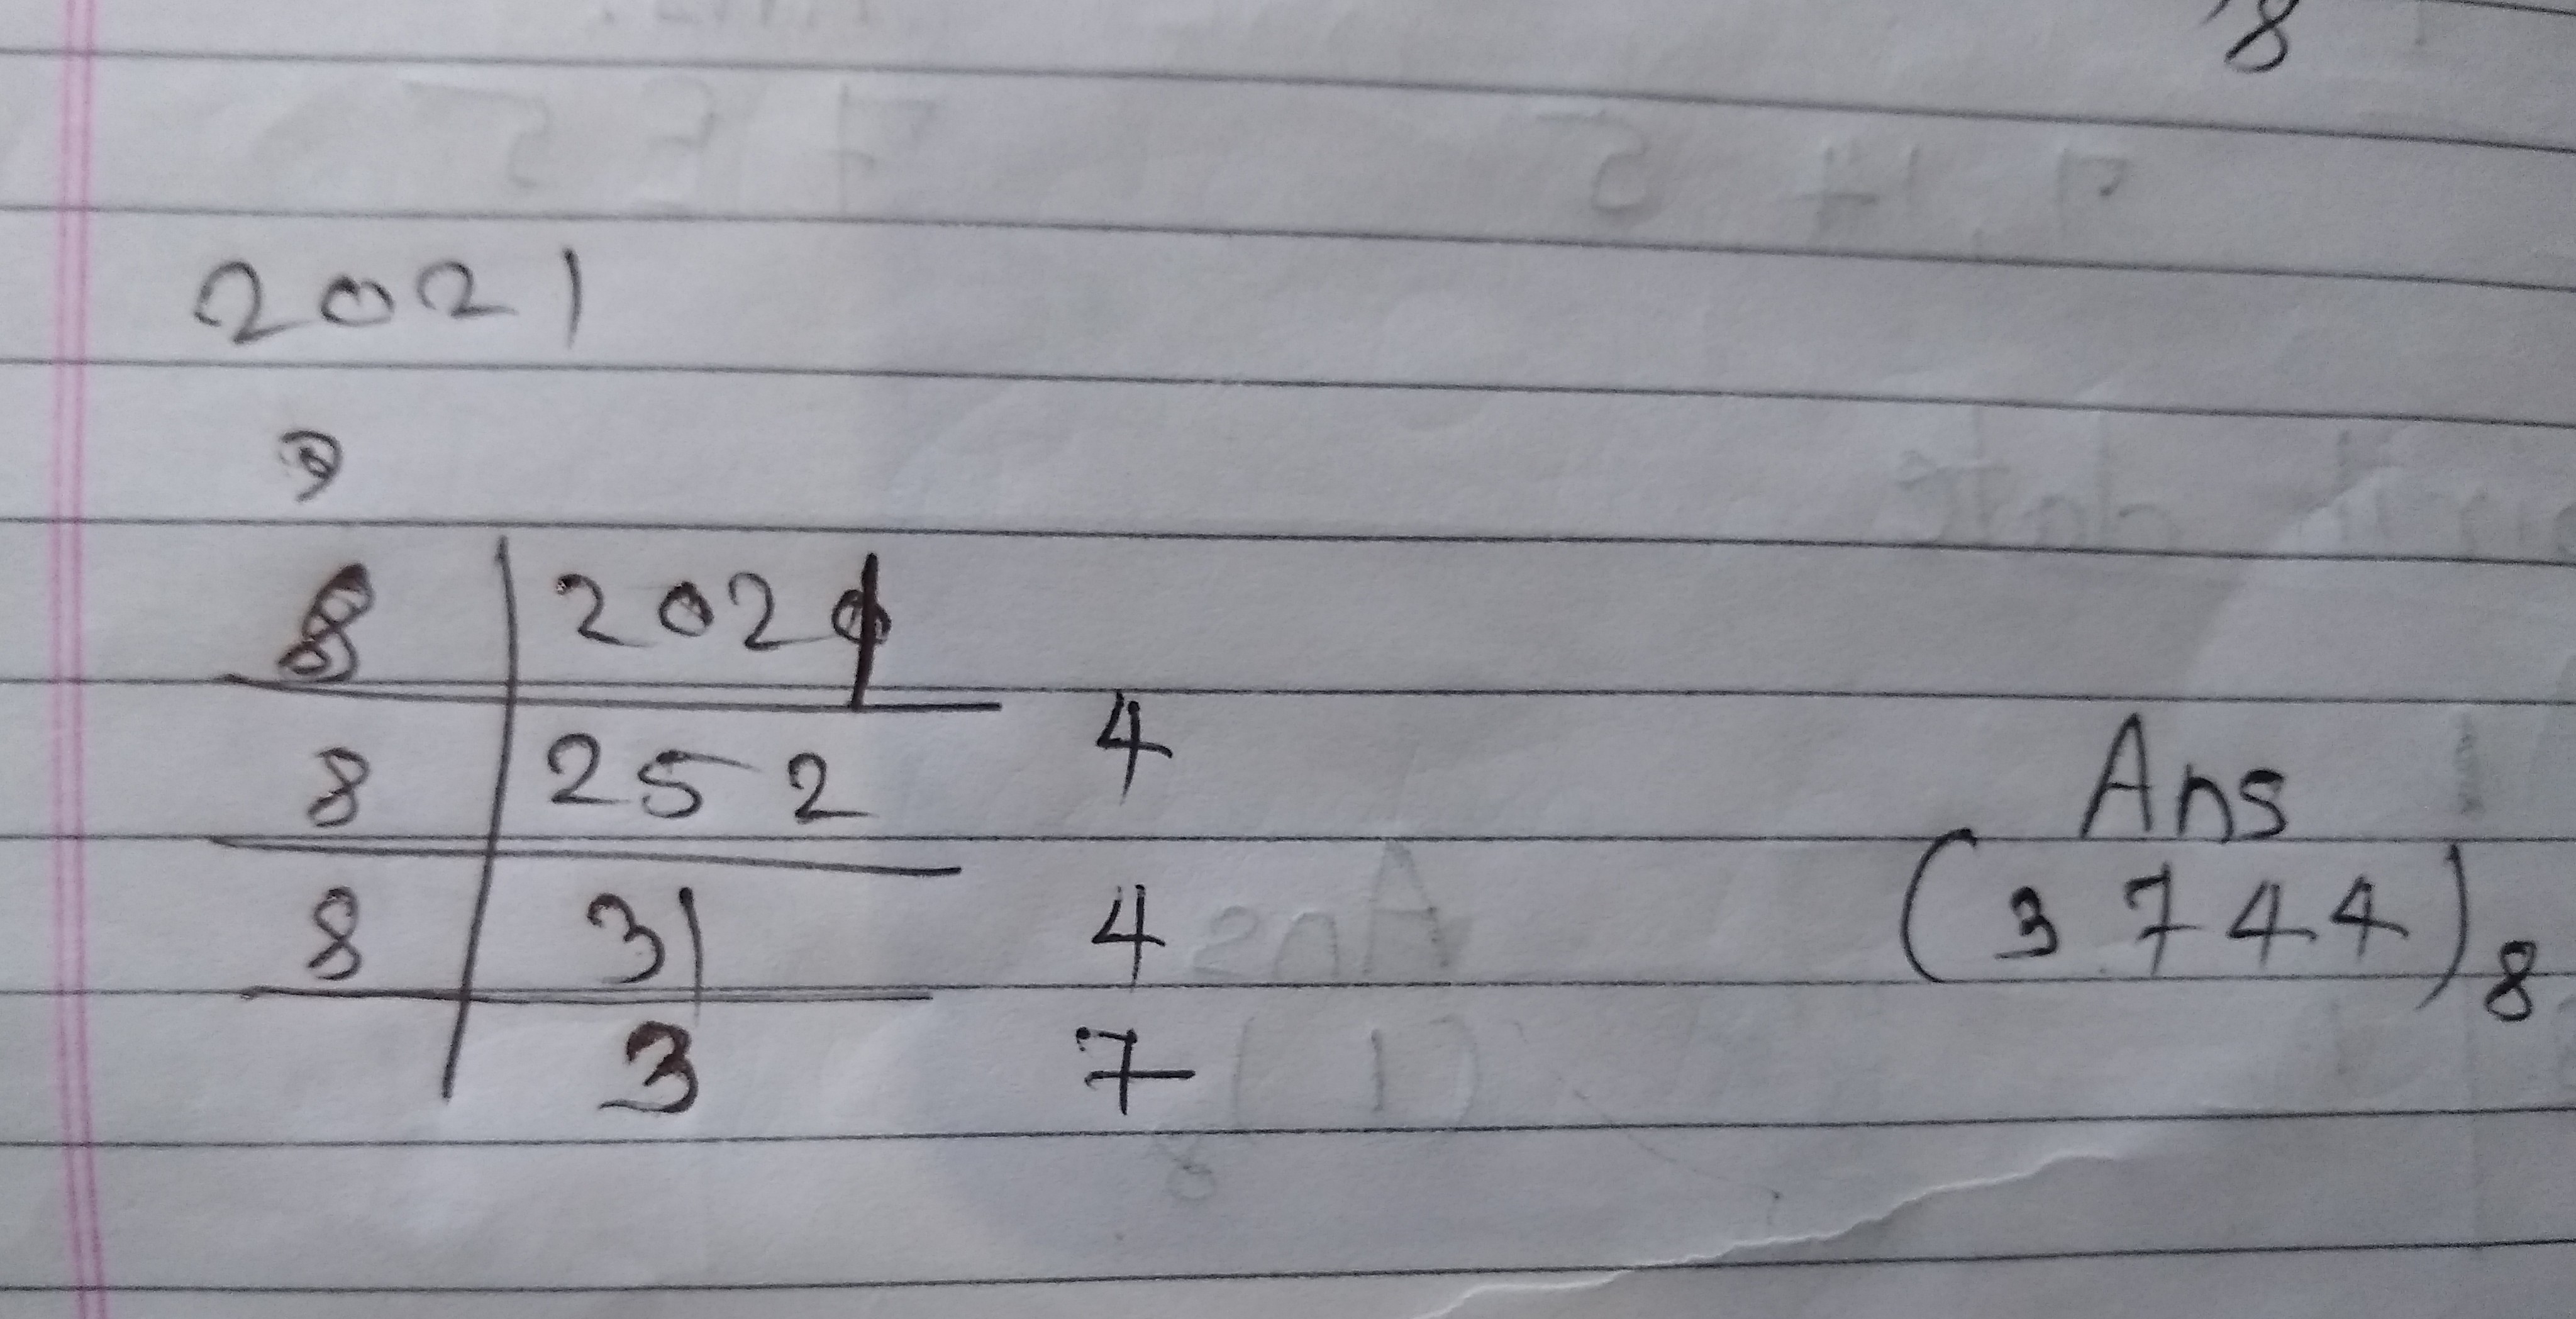 8
2021
8 2021
8 252 4
8 31 4
3 7
Ans
(3744)8